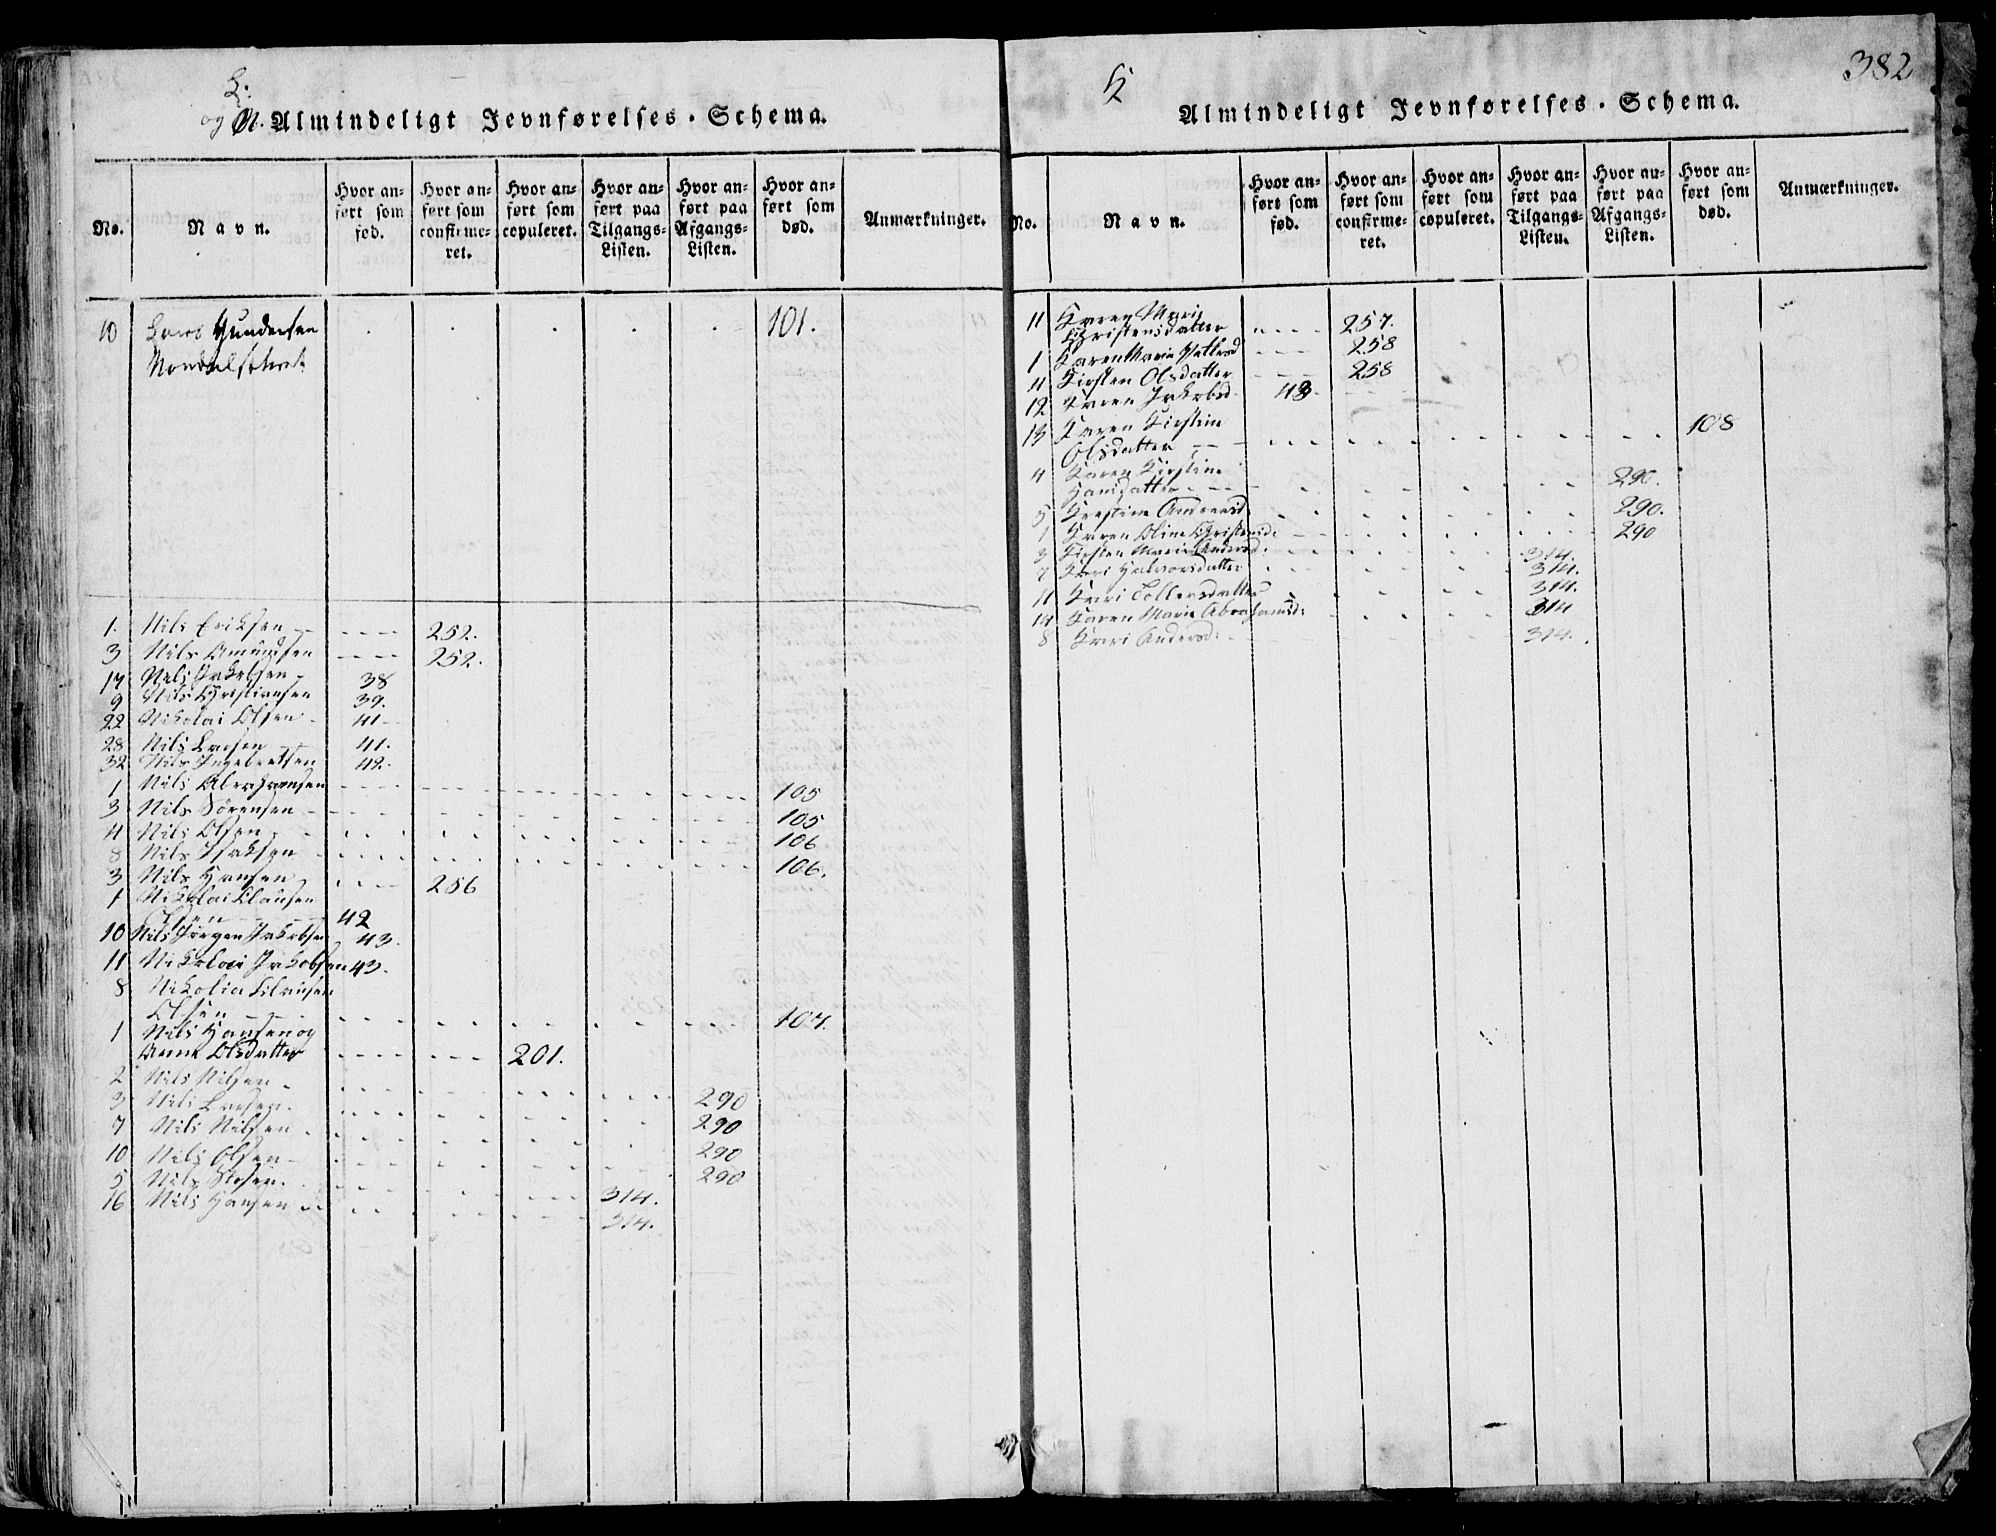 L.
og N. Almindeligt Jevnførelses-Schema.
No. Navn. Hvor anført som fød. Hvor anført som confirmeret. Hvor anført som copuleret. Hvor anført paa Tilgangs-Listen. Hvor anført paa Afgangs-Listen. Hvor anført som død. Anmærkninger.
10 Lars Gundersen 101.
1. Nils Eriksen 252.
3 Nils Amundsen 252.
17 Nils Jakobsen 38
9 Nils Christiansen 39.
22 Nikolai Olsen 41
28 Nils Larsen 41.
32 Nils Ingebretsen 42.
1 Nils Abrahamsen 105
3 Nils Sørensen 105
4 Nils Olsen 106
8 Nils Isaksen 106.
3 Nils Hansen 256
1 Nikolai Clausen
Olsen 42
10 Nils Jørgen Jakobsen 43.
11 Nikolai Jakobsen 43.
8 Nikolia
Olsen 107.
1 Nils Hansen og
Anne Olsdatter 201.
2 Nils Nilsen 290
3 Nils Larsen 290
7 Nils Nilsen 290
10 Nils Olsen 290
5 Nils 314.
16 Nils Hansen 314.
K 382
Almindeligt Jevnførelses-Schema.
No. Navn. Hvor anført som fød. Hvor anført som confirmeret. Hvor anført som copuleret. Hvor anført paa Tilgangs-Listen. Hvor anført paa Afgangs-Listen. Hvor anført som død. Anmærkninger.
11 Karen Marie
Christensdatter 257.
1 Karen Marie 258
11 Kirsten Olsdatter 258
12 Karen Jakobsd 43.
13 Karen Kirstine
Olsdatter 108
4 Karen Kirstine
Hansdatter 290.
5 Kirstine Andersd. 290.
1 Karen Oline Christensd. 290
3 Kirsten Marie Andersd. 314.
7 Kari Halvorsdatter 314.
11 Kari Tollefsdatter 314.
14 Karen Marie Abrahamsd. 314
8 Kari Andersd. 314.